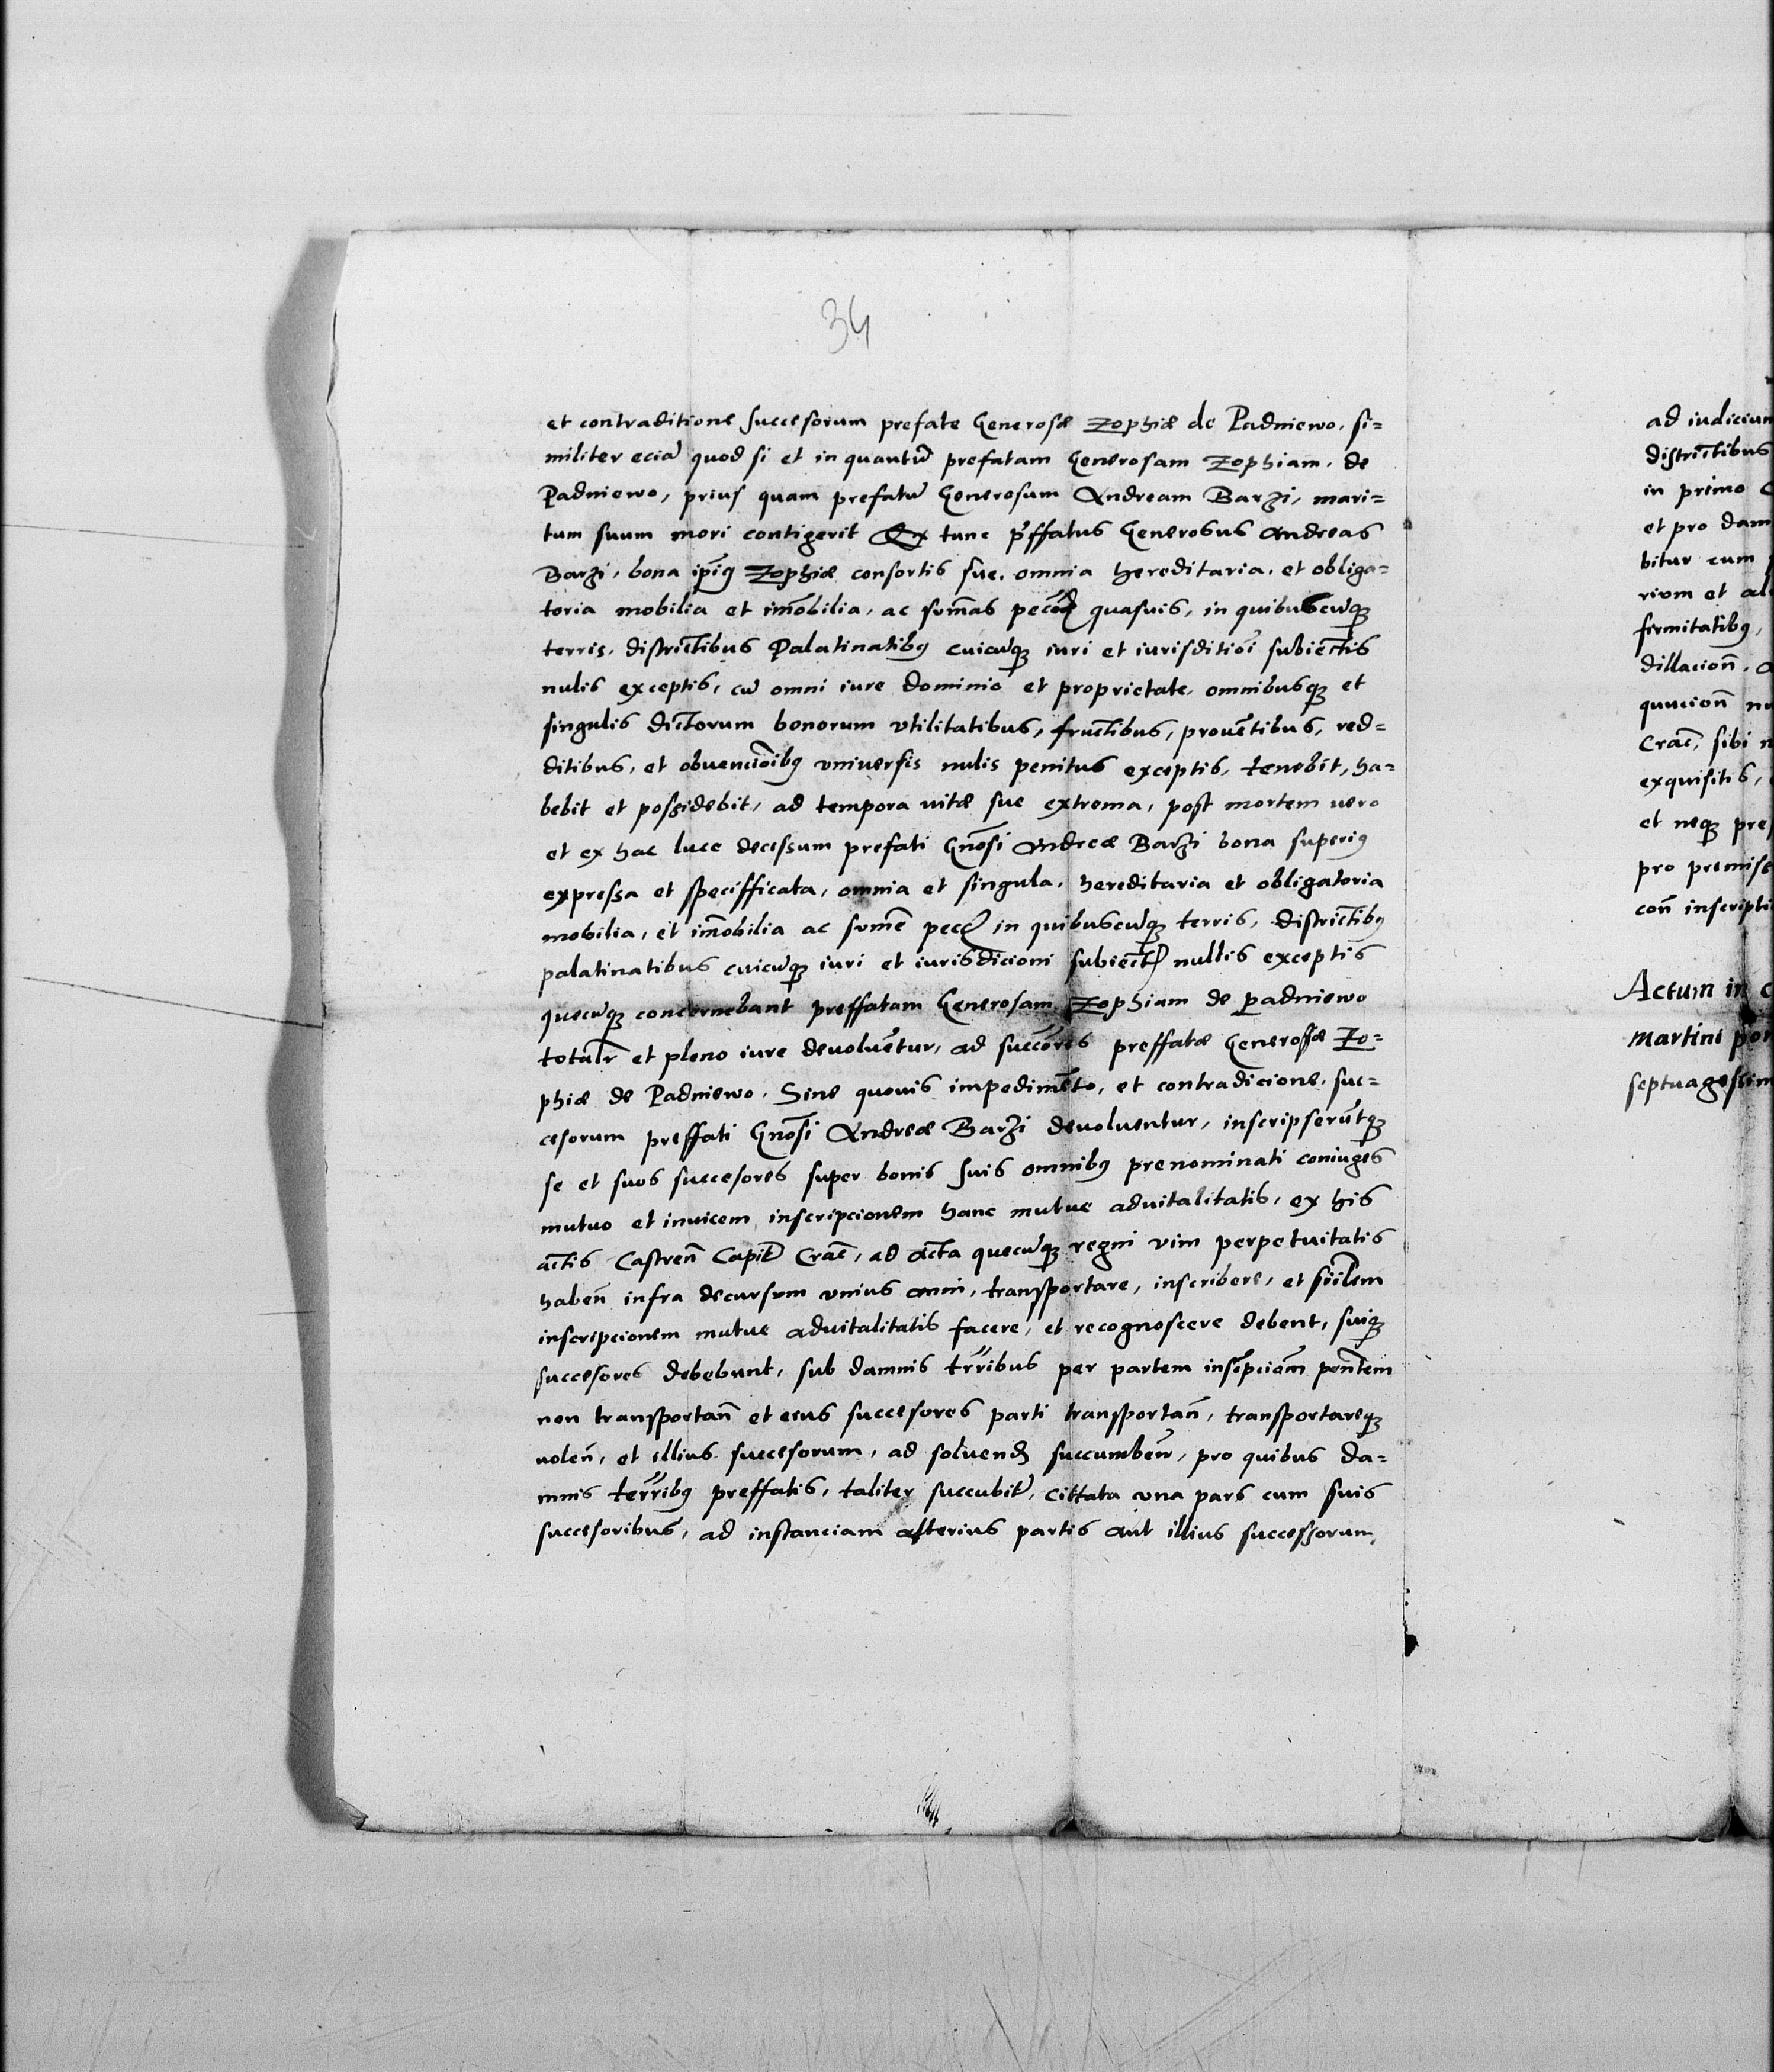 34
et contraditione succesorum prefate Generosæ Zophiæ de Padniewo, si=
militer eciā quod si et in quantū prefatam Generosam Zophiam, de
Padniewo, prius quam prefatū Generosum Andream Barzi, mari=
tum suum mori contigerit Ex tunc p̄ffatus Generosus Andreas
Barzi, bona ip̄ius Zophiæ consortis sue, omnia hereditaria, et obliga=
toria mobilia et im̄obilia, ac sum̄as quasuis, in quibuscūq₃
terris, districtibus Palatinatibus cuicūq₃ iuri et iurisditioī subiectis
nulis exceptis, cū omni iure dominio et proprietate, omnibusq₃ et
singulis dictorum bonorum vtilitatibus, fructibus, prouētibus, red=
ditibus, et obuencioībus vniuersis nulis penitus exceptis, tenebit, ha=
bebit et possidebit, ad tempora uitæ sue extrema, post mortem uero
et ex hac luce decessum prefati Gn̄osi Andreæ Barzi bona superius
expressa et speciffcata, omnia et singula, hereditaria et obligatoria
mobilia, et im̄obilia ac sum̄e in quibuscūq₃ terris, districtibus
palatinatibus cuicūq₃ iuri et iurisdicioni subiect nullis exceptis
quecūq₃ concernebant preffatam Generosam Zophiam de Padniewo
totalr̄ et pleno iure deuoluētur, ad succ̄ores preffatæ Generosæ Zo=
phiæ de Padniewo. Sine quouis impedimēto, et contradicione, suc=
cesorum preffati Gn̄osi Andreæ Barzi deuoluentur, inscripserūtq₃
se et suos succesores super bonis suis omnibus prenominati coniuges
mutuo et inuicem inscripcionem hanc mutue aduitalitatis, ex his
actis Castren̄ Capit̄ Crac̄, ad acta quecūq₃ regni vim perpetuitatis
haben̄ infra decursum vnius anni, transportare, inscribere, et siīlem
inscripcionem mutue aduitalitatis facere, et recognoscere debent, suiq₃
succesores debebunt, sub damnis tr̄ribus per partem insc̄pciom̄ pn̄tem
non transportan̄ et eius succesores parti transportan̄, transportareq₃
uolen̄, et illius succesorum, ad soluend succumben̄, pro quibus da=
mnis ter̄ribus preffatis, taliter succubit̄, cittata una pars cum suis
succesoribus, ad instanciam alterius partis aut illius successorum,
ad iudicium
districtibus
in primo
et pro dam
bitur cum
rium et al
firmitatibus,
dillacion̄.
quucion̄
Crac̄, sibi
exquisitis,
et neq₃ pref
pro premiss
con̄ inscripti
Actum in c
Martini
septuagesim